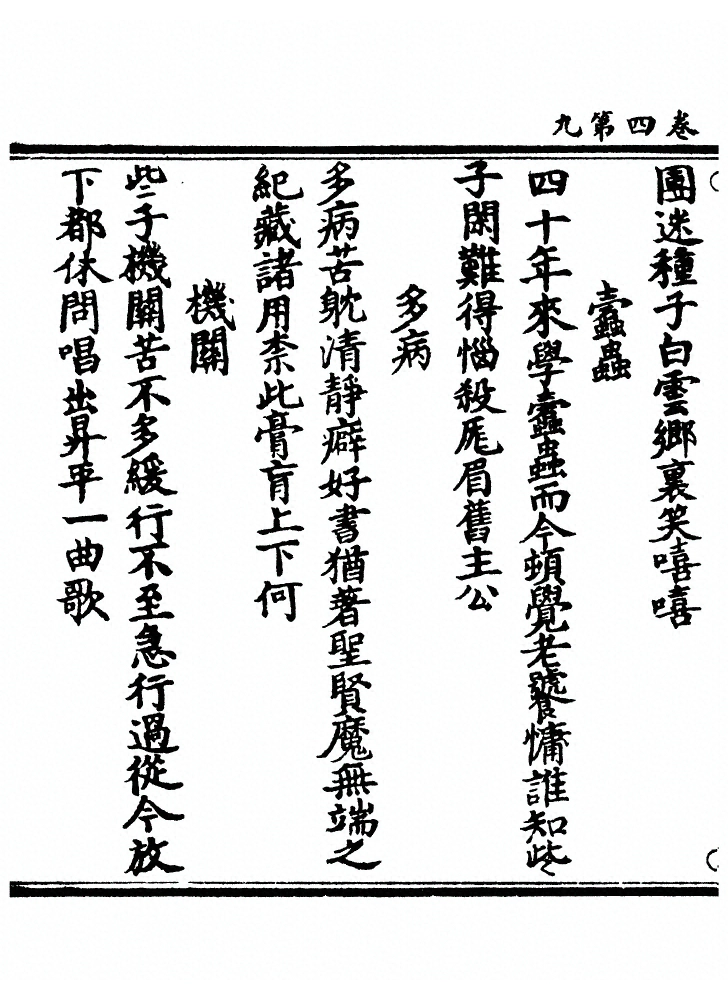 卷四第九
團迷種子白雲鄉裏笑嘻嘻
蠹蟲
四十年來學蠹蟲而今頓覺老饕慵誰知些
子閑難得惱殺厖眉舊主公
多病
多病苦躭清靜癖好書猶著聖賢魔無端之
紀藏諸用柰此膏肓上下何
機關
些子機關苦不多緩行不至急行過從今放
下都休問唱出昇平一曲歌